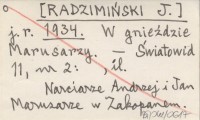 [RADZIMIŃSKI J.]
j.r. 1934. W gnieździe
Marusarzy. — Światowid
11, nr 2: , il.
Narciarze Andrzej i Jan
Marusarze w Zakopanem.